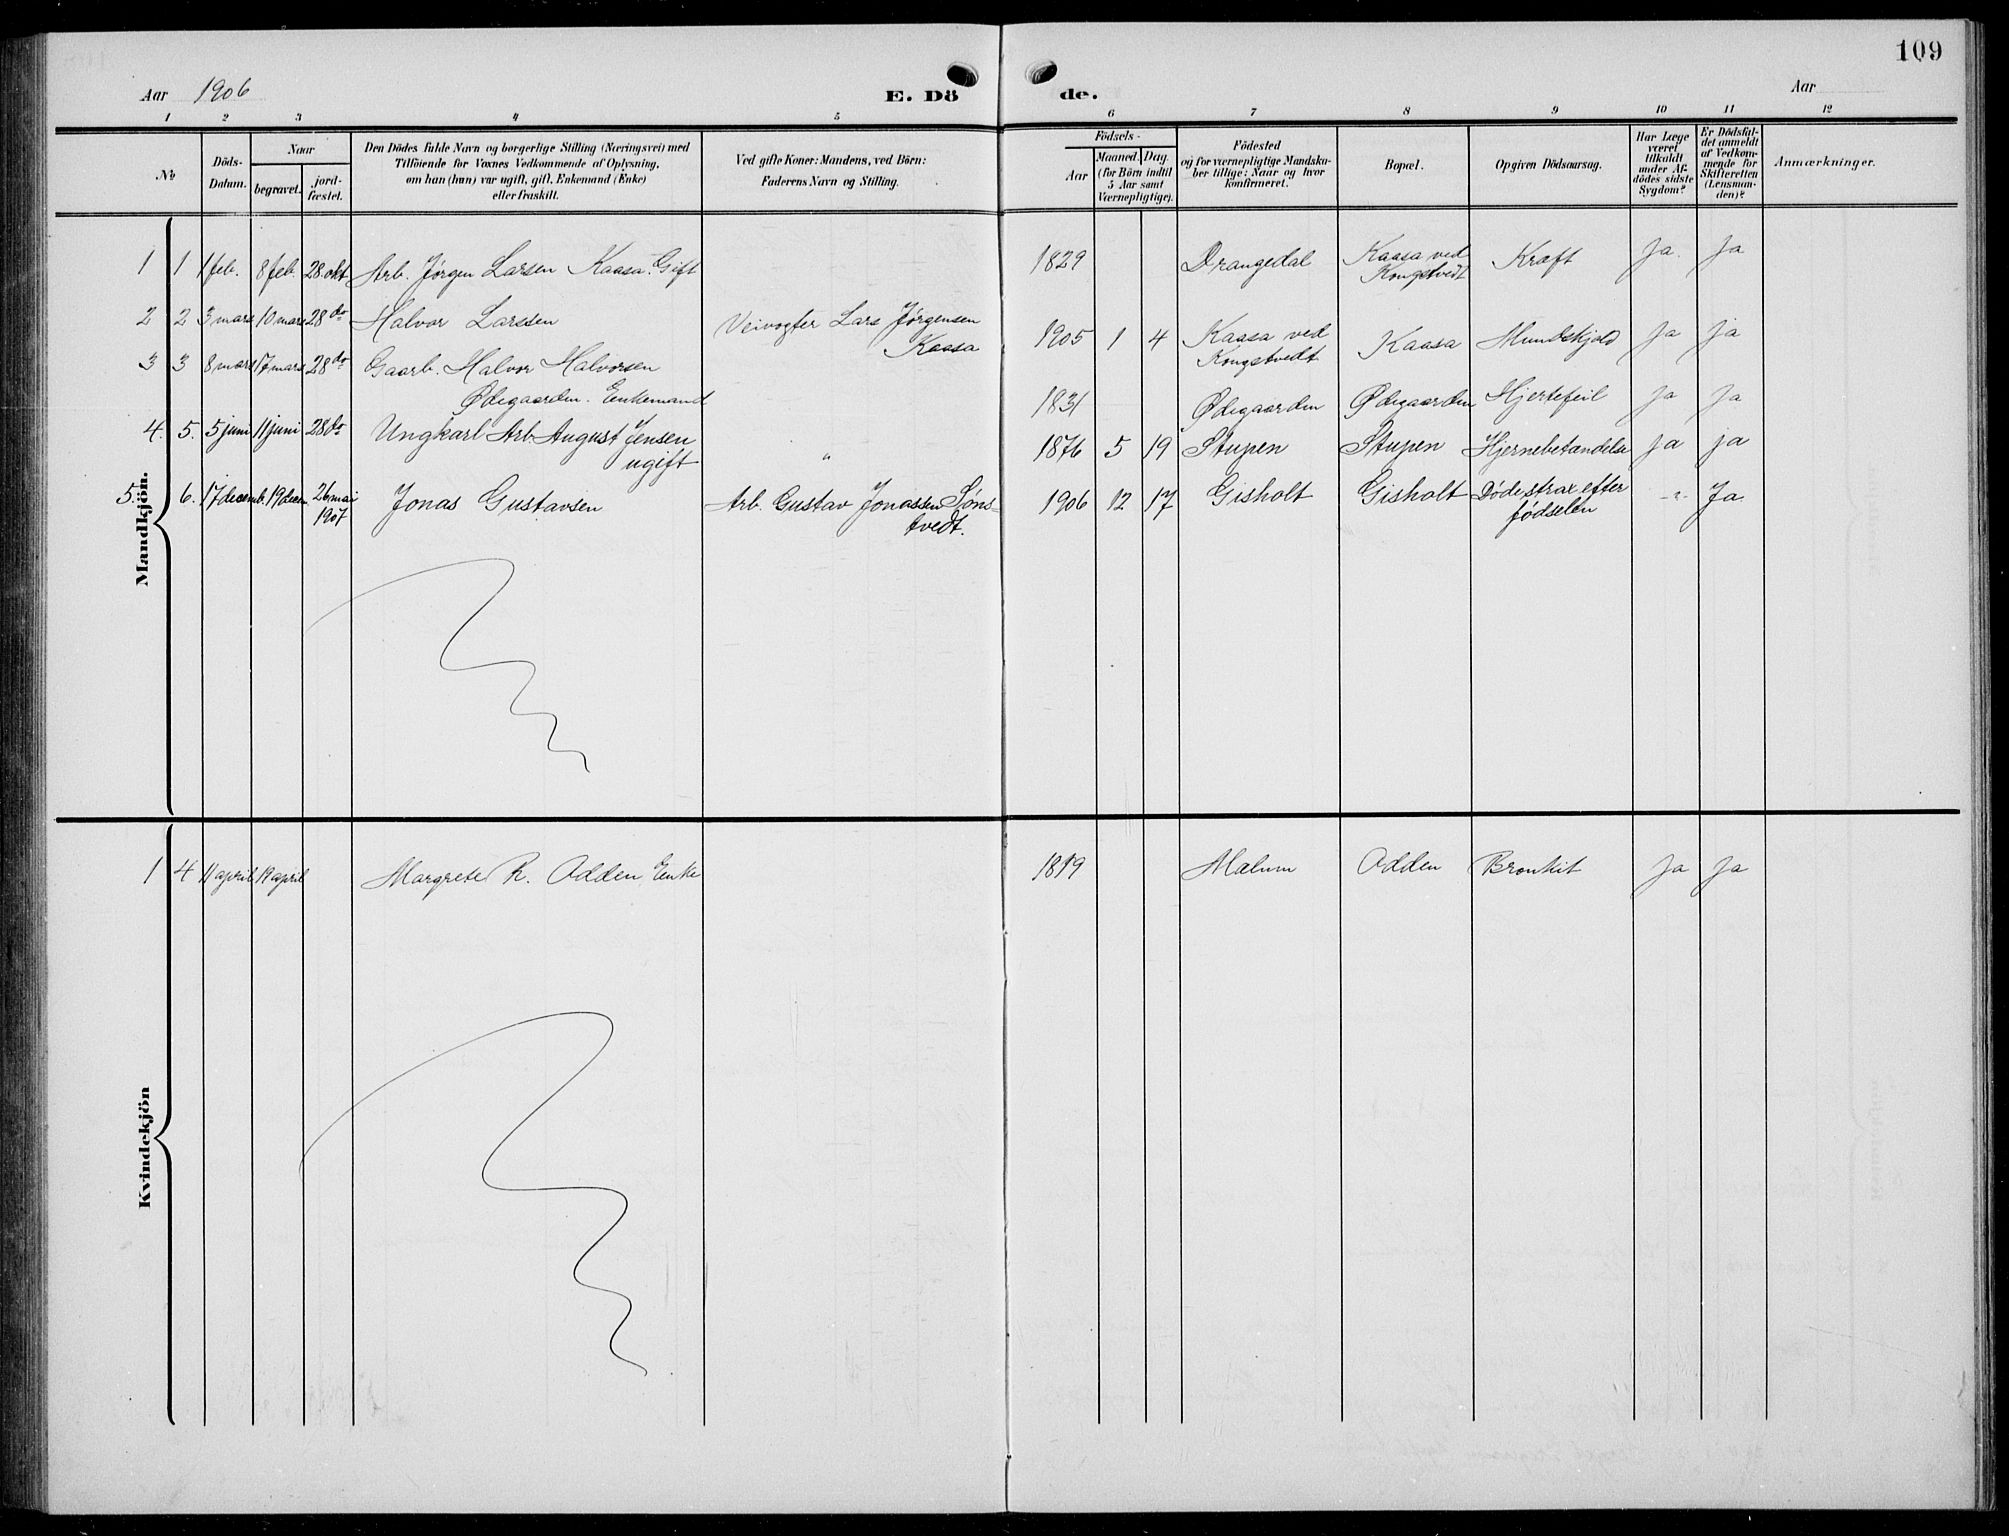 109
Aar 1906
E. Dö
de.
Aar
1 2 3 4 5 6 7 8 9 10 11 12
No
Döds-Datum.
Naar
begravet.
jord-fæstet.
Den Dödes fulde Navn og borgerlige Stilling (Næringsvei) med
Tilföiende for Voxnes Vedkommende af Oplysning,
om han (hun) var ugift, gift, Enkemand (Enke)
eller fraskilt.
Ved gifte Koner: Mandens, ved Börn:
Faderens Navn og Stilling.
Födsels-
Aar
Maaned.
Dag
(for Börn indtil
5 Aar samt
Værnepligtige).
Födested
og for værnepligtige Mandska-
ber tillige: Naar og hvor
konfirmeret.
Bopæl.
Opgiven Dödsaarsag.
Har Læge
været
tilkaldt
under Af-
dödes sidste
Sygdom?
Er Dödsfal-
det anmeldt
af Vedkom-
mende for
Skifteretten
(Lensman-
den)?
Anmærkninger.
Mandkjön.
1 1 1 feb. 8 feb. 28 okt Arb. Jørgen Larsen Kaasa. Gift 1829 Drangedal Kaasa ved Kongstvedt Kræft Ja. Ja
2 2 3 mars 10 mars 28 do Halvor Larssen Veivogter Lars Jørgensen Kaasa 1905 1 4 Kaasa ved Kongstvedt Kaasa Mundskjold Ja ja
3 3 8 mars 17 mars 28 do Gaarb. Halvor Halvorsen
Ødegaarden. Enkemand 1831 Ødegaarden Ødegaarden Hjertefeil Ja Ja
4. 5. 5 juni 11 juni 28 do Ungkarl Arb. August Jensen
ugift " 1876 5 19 Stupen Stupen Hjernebetændelse ja ja
5. 6. 17 decemb. 19 decm 26 mai 1907 Jonas Gustavsen Arb. Gustav Jonassen Søns-
tvedt. 1906 12 17 Gisholt Gisholt Døde strax efter
fødselen -"- Ja
Kvindekjön
1 4 11 april 19 april Margrete R. Odden Enke 1819 Mælum Odden Bronkit Ja Ja